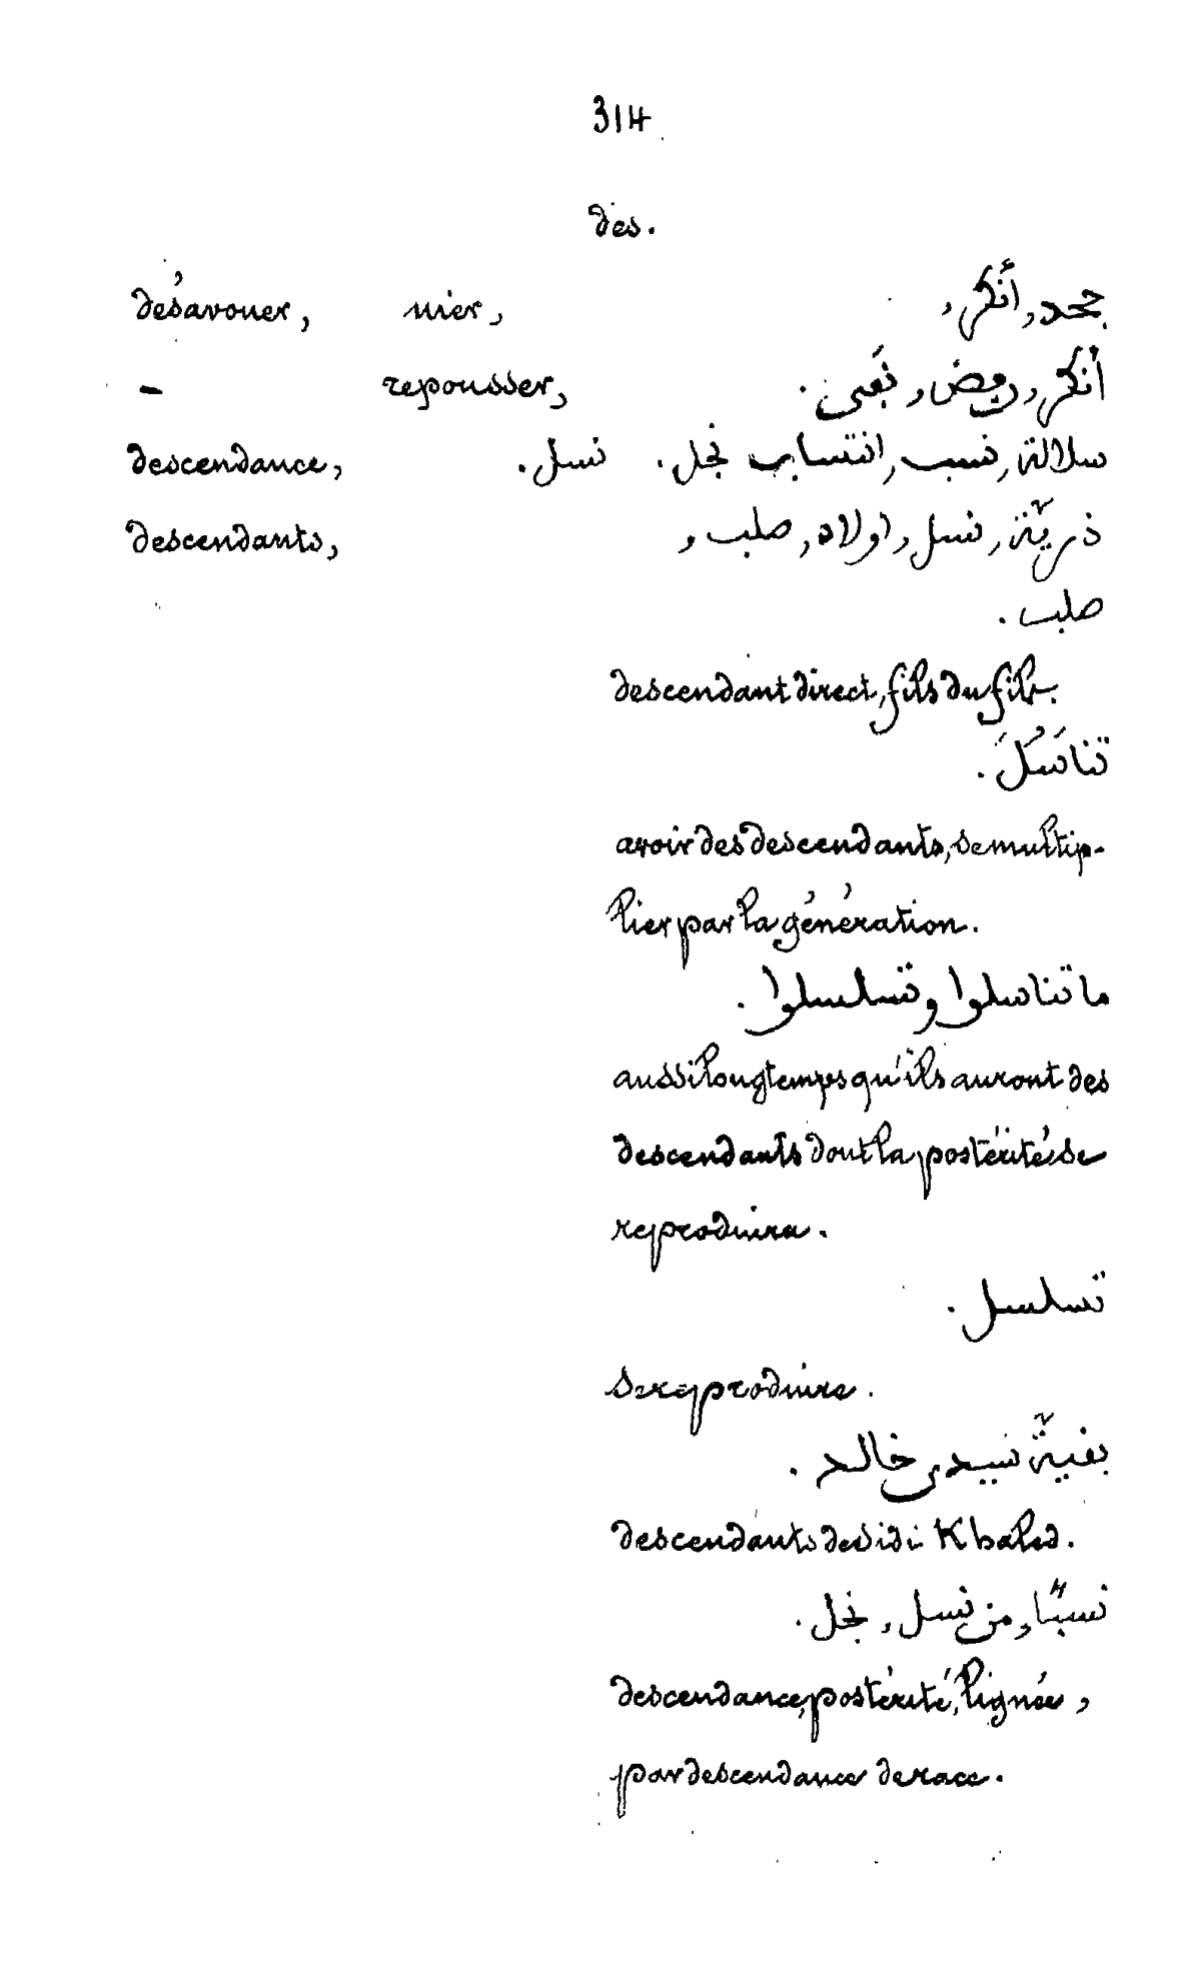 314
des.
désavouer, nier, جحد, أنكر,
- repousser, أنكر, رفض, نَفى.
descendance, سلالة, نسب, انتساب نجل. نسل.
descendants, ذريّة, نسل, اولاد, صلب,
صلب.
descendant direct, fils du fils.
تناسُلَ.
avoir des descendants, se multip-
lier par la génération.
ما تناسلوا وتسلسلوا.
aussi longtemps qu'ils auront des
descendants dont la postérité se
reproduira.
تسلسل.
se reproduire.
بقيّة سيدي خالد.
descendants de Sidi Khaled.
نسبًا, من نسل, نجل.
descendance, postérité, lignée,
par descendance de race.